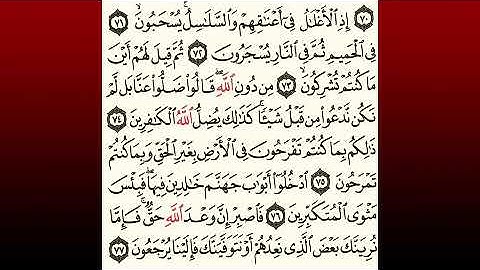 ٧٠ إِذِ ٱلْأَغْلَٰلُ فِىٓ أَعْنَٰقِهِمْ وَٱلسَّلَٰسِلُ يُسْحَبُونَ ٧١
فِى ٱلْحَمِيمِ ثُمَّ فِى ٱلنَّارِ يُسْجَرُونَ ٧٢ ثُمَّ قِيلَ لَهُمْ أَيْنَ
مَا كُنتُمْ تُشْرِكُونَ ٧٣ مِن دُونِ ٱللَّهِ ۖ قَالُوا۟ ضَلُّوا۟ عَنَّا بَل لَّمْ
نَكُن نَّدْعُوا۟ مِن قَبْلُ شَيْـًٔا ۚ كَذَٰلِكَ يُضِلُّ ٱللَّهُ ٱلْكَٰفِرِينَ ٧٤
ذَٰلِكُم بِمَا كُنتُمْ تَفْرَحُونَ فِى ٱلْأَرْضِ بِغَيْرِ ٱلْحَقِّ وَبِمَا كُنتُمْ
تَمْرَحُونَ ٧٥ ٱدْخُلُوٓا۟ أَبْوَٰبَ جَهَنَّمَ خَٰلِدِينَ فِيهَا ۖ فَبِئْسَ
مَثْوَى ٱلْمُتَكَبِّرِينَ ٧٦ فَٱصْبِرْ إِنَّ وَعْدَ ٱللَّهِ حَقٌّ ۚ فَإِمَّا
نُرِيَنَّكَ بَعْضَ ٱلَّذِى نَعِدُهُمْ أَوْ نَتَوَفَّيَنَّكَ فَإِلَيْنَا يُرْجَعُونَ ٧٧